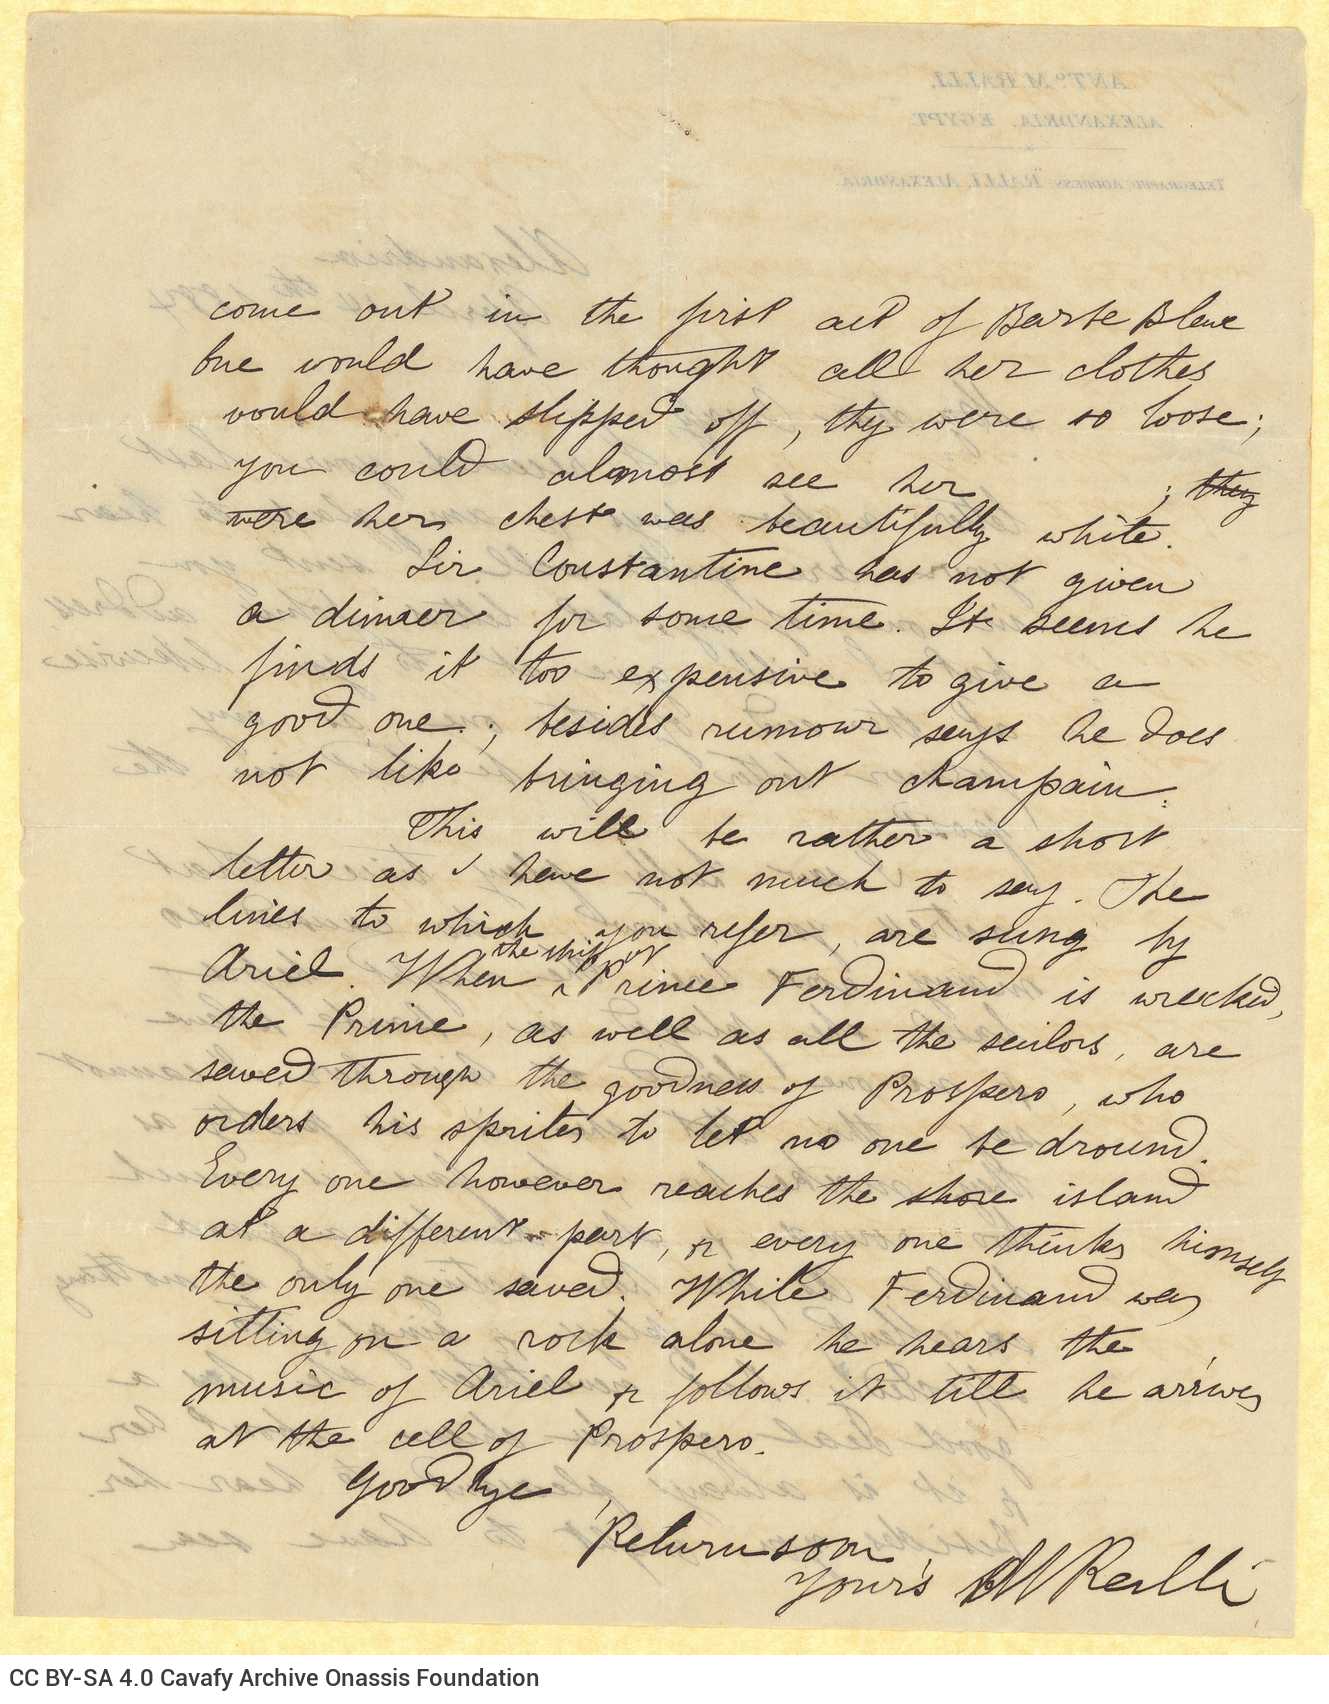 come out in the first act of Barbe Bleue
one would have thought all her clothes
would have slipped off, they were so loose;
you could almost see her ; they
were her chest was beautifully white.
Sir Constantine has not given
a dinner for some time. It seems he
finds it too expensive to give a
good one; besides rumour says he does
not like bringing out champain.
This will be rather a short
letter as I have not much to say. The
lines to which you refer, are sung by
Ariel. When the ship of Prince Ferdinand is wrecked,
the Prince, as well as all the sailors, are
saved through the goodness of Prospero, who
orders his sprites to let no one be dround.
Every one however reaches the shore island
at a different part, & every one thinks himself
the only one saved. While Ferdinand was
sitting on a rock alone he hears the
music of Ariel & follows it till he arrives
at the cell of Prospero.
Goodbye,
Return soon,
Your's Ralli
ANTº M. RALLI,
ALEXANDRIA, EGYPT.
TELEGRAPHIC ADDRESS: RALLI, ALEXANDRIA.
CC BY-SA 4.0 Cavafy Archive Onassis Foundation